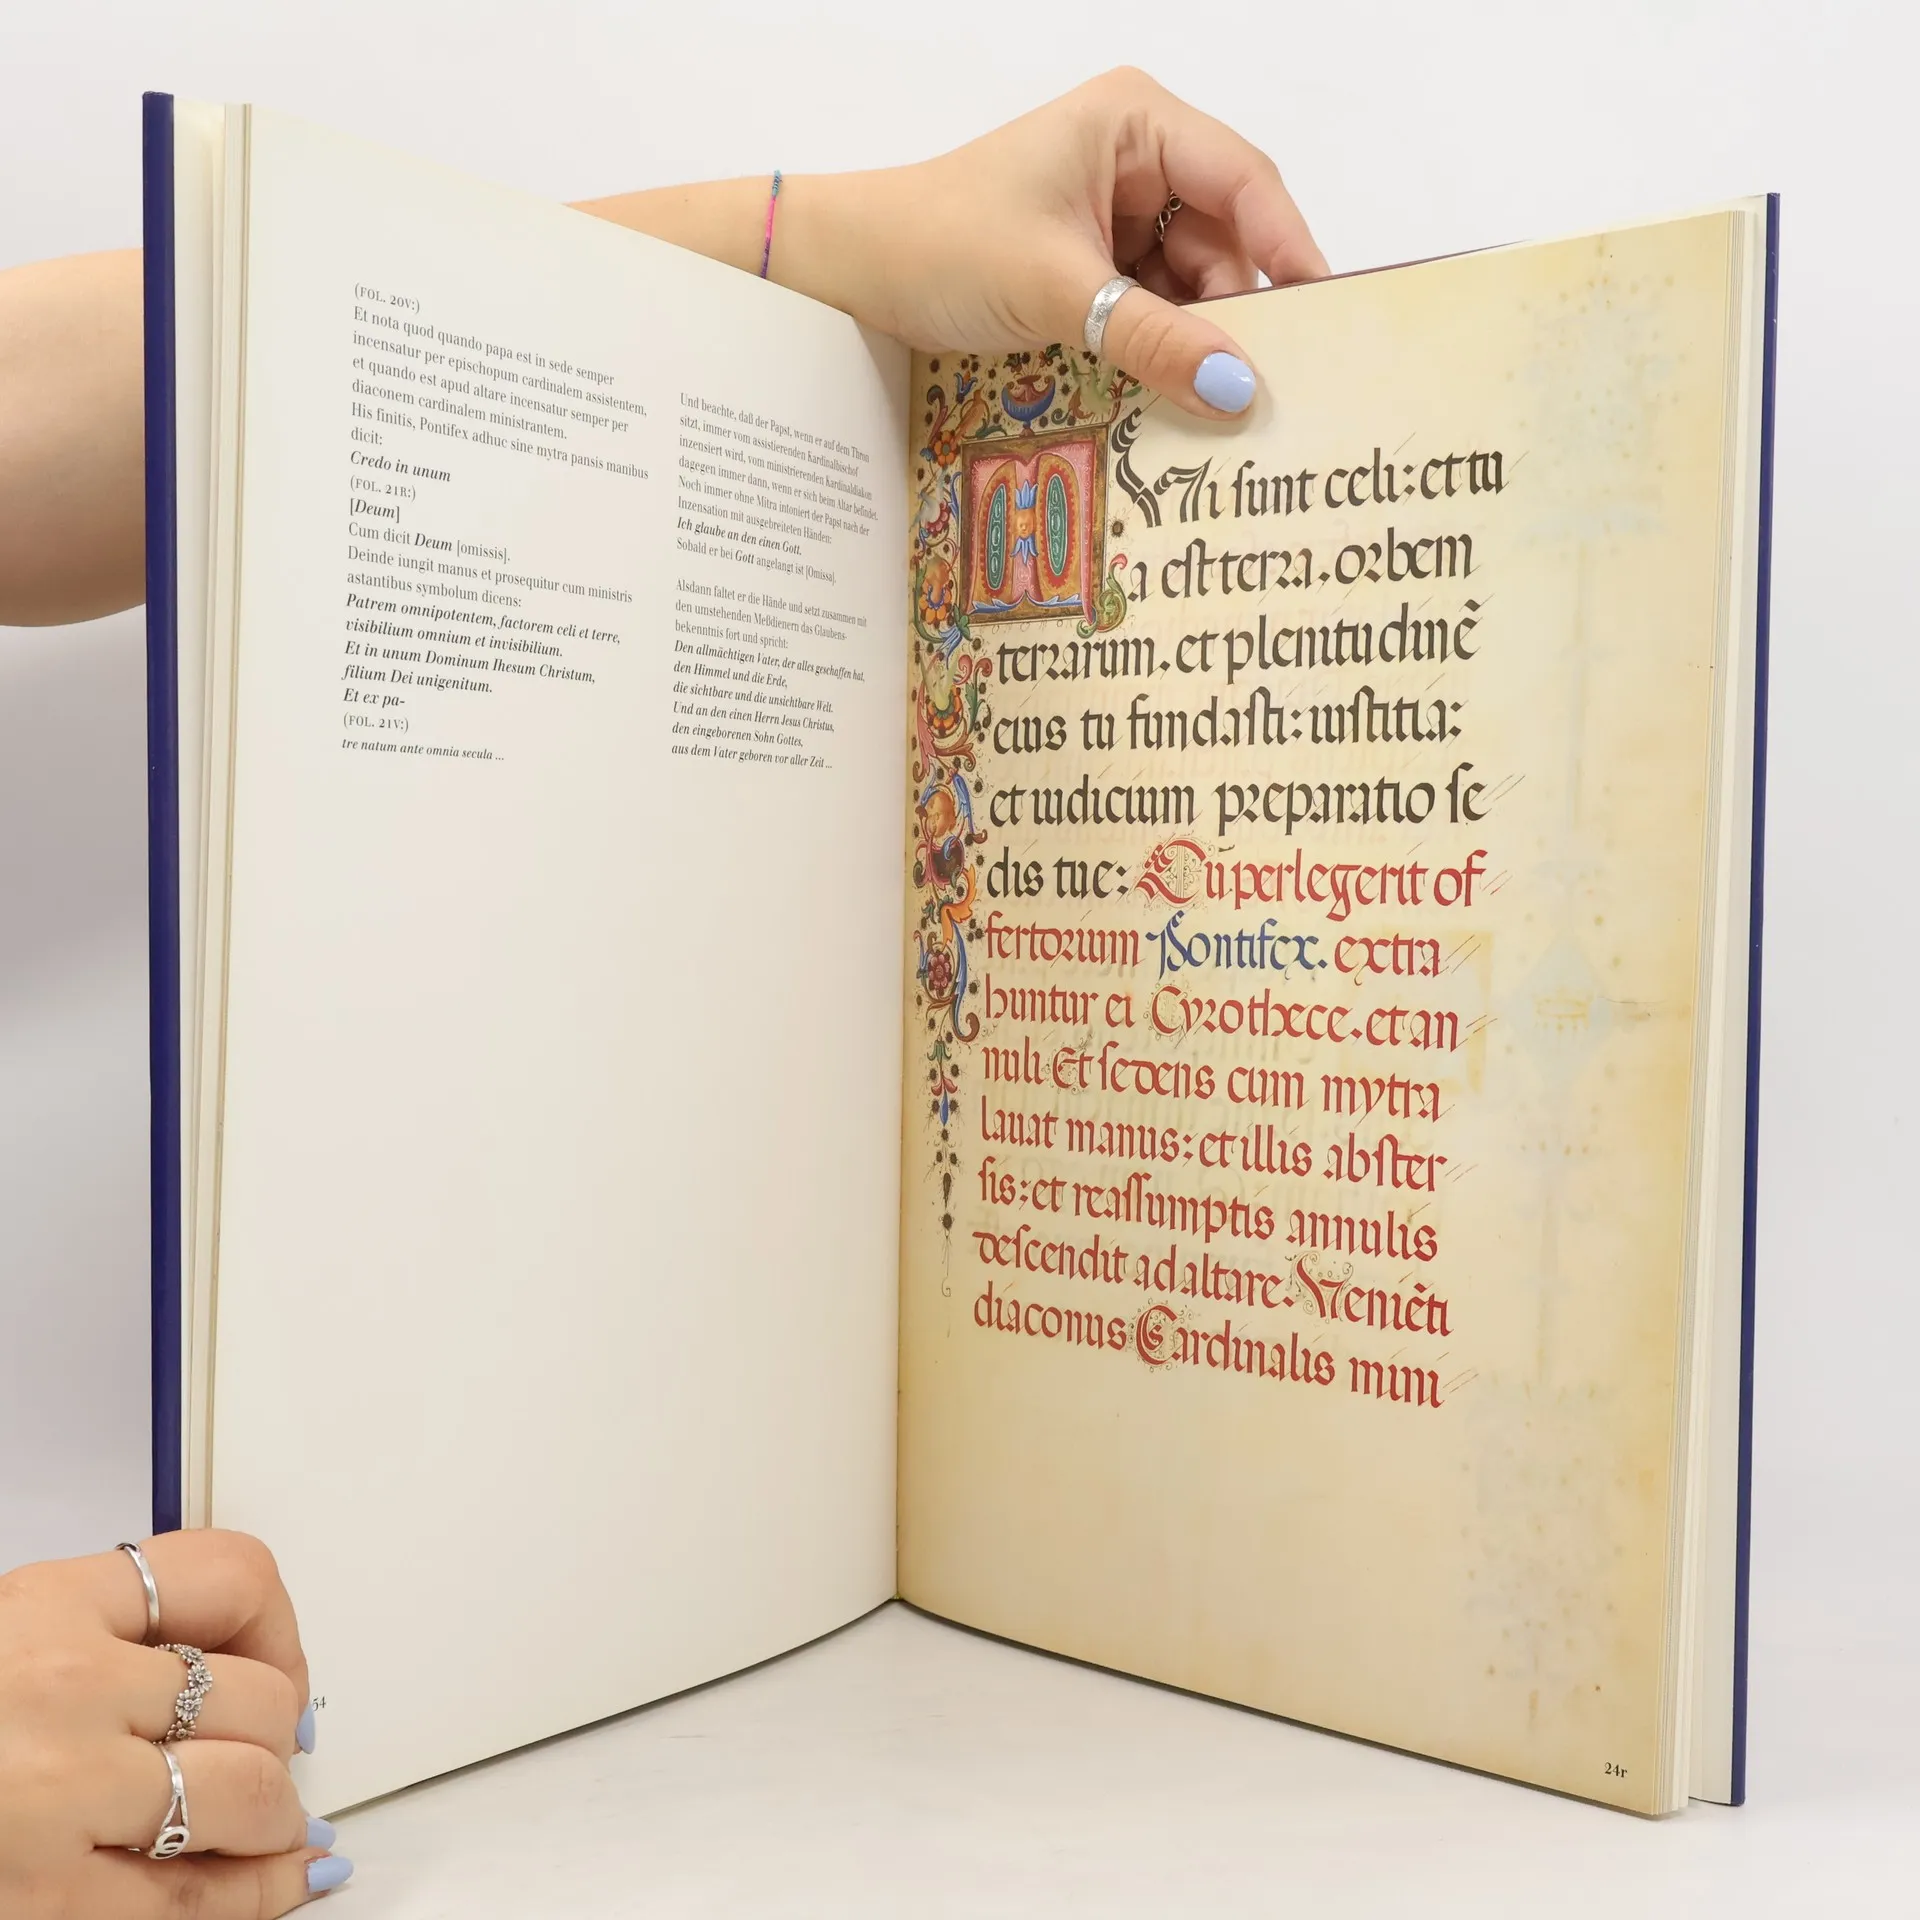 (FOL. 20V:)
Et nota quod quando papa est in sede semper
incensatur per epischopum cardinalem assistentem,
et quando est apud altare incensatur semper per
diaconem cardinalem ministrantem.
His finitis, Pontifex adhuc sine mytra pansis manibus
dicit:
Credo in unum
(FOL. 21R:)
[Deum]
Cum dicit Deum [omissis].
Deinde iungit manus et prosequitur cum ministris
astantibus symbolum dicens:
Patrem omnipotentem, factorem celi et terre,
visibilium omnium et invisibilium.
Et in unum Dominum Ihesum Christum,
filium Dei unigenitum.
Et ex pa-
(FOL. 21V:)
tre natum ante omnia secula ...
Und beachte, daß der Papst, wenn er auf dem Thron
sitzt, immer vom assistierenden Kardinalbischof
inzensiert wird, vom ministrierenden Kardinaldiakon
dagegen immer dann, wenn er sich beim Altar befindet.
Noch immer ohne Mitra intoniert der Papst nach der
Inzensation mit ausgebreiteten Händen:
Ich glaube an den einen Gott.
Sobald er bei Gott angelangt ist [Omissa].
Alsdann faltet er die Hände und setzt zusammen mit
den umstehenden Meßdienern das Glaubens-
bekenntnis fort und spricht:
Den allmächtigen Vater, der alles geschaffen hat,
den Himmel und die Erde,
die sichtbare und die unsichtbare Welt.
Und an den einen Herrn Jesus Christus,
den eingeborenen Sohn Gottes,
aus dem Vater geboren vor aller Zeit ...
54
Ui sunt celi: et tu
a est terra. orbem
terrarum. et plenitudinē
eius tu fundasti: iustitia:
et iudicium preparatio se
dis tue: Cū perlegerit of
fertorium Pontifex. extra
huntur ei Cyrothece. et an
nuli Et sedens cum mytra
lauat manus: et illis abster
sis: et reassumptis annulis
descendit ad altare. Veniēti
diaconus Cardinalis mini
24r